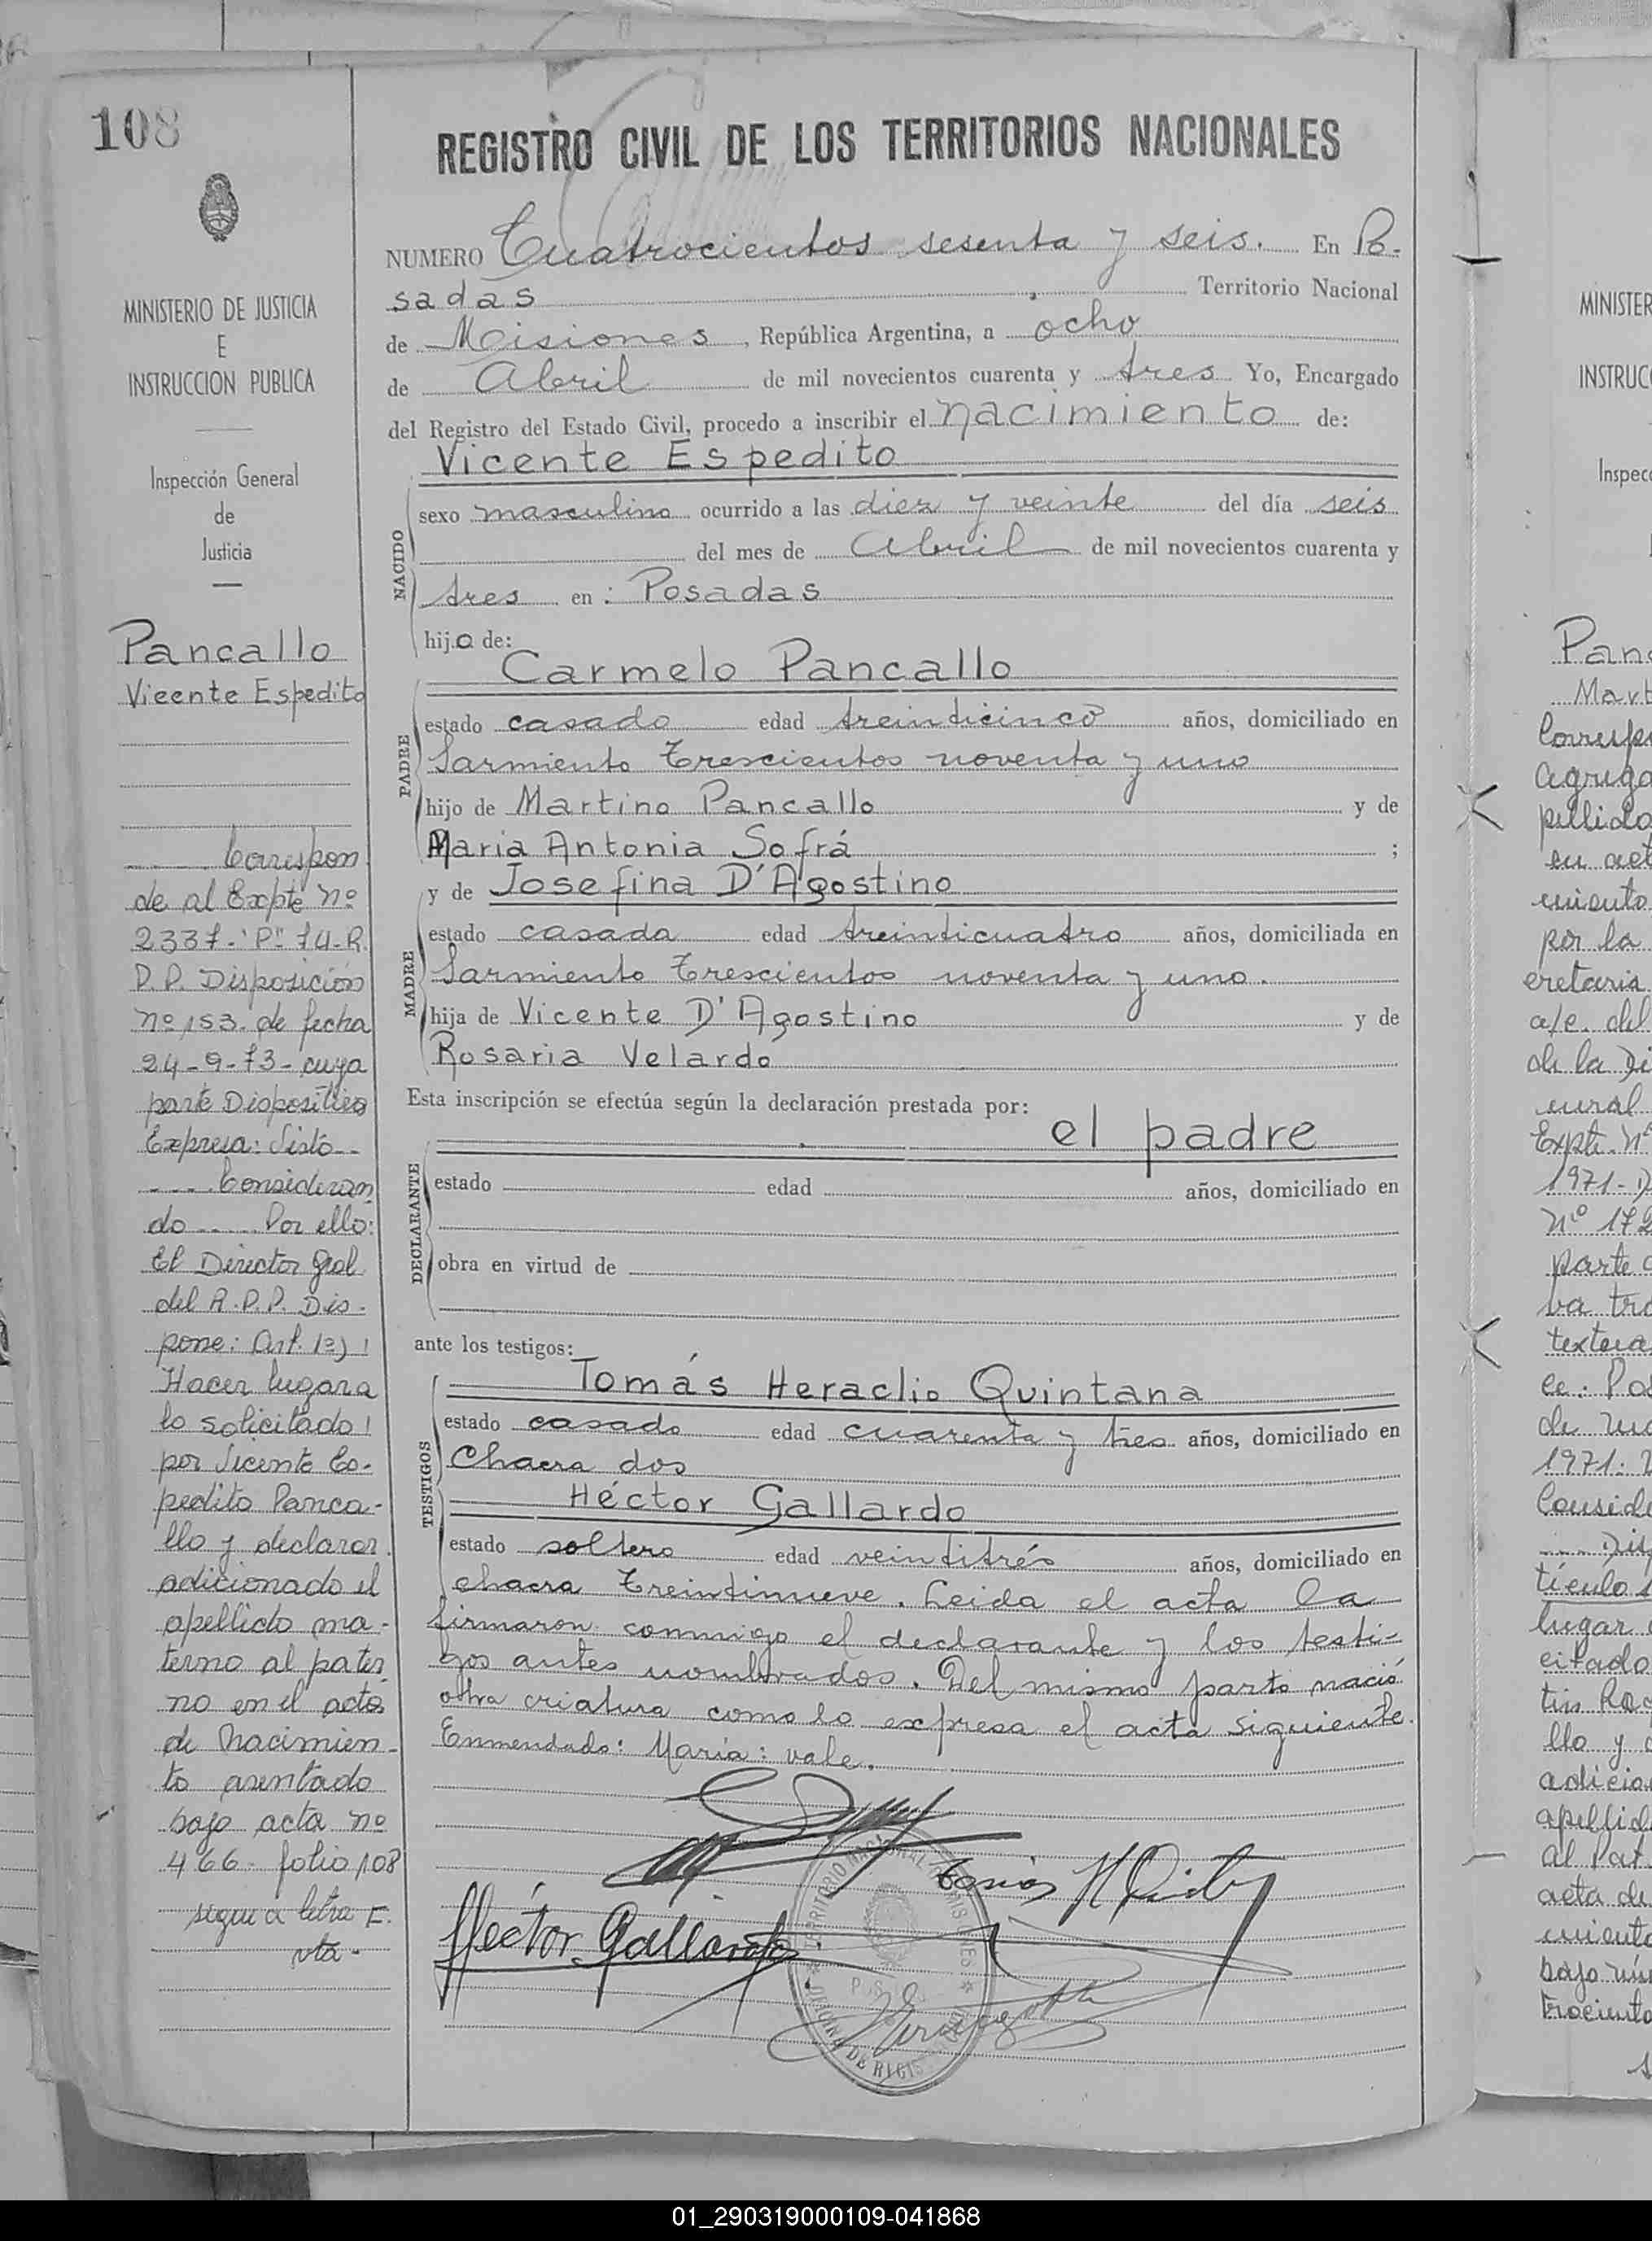 108
REGISTRO CIVIL DE LOS TERRITORIOS NACIONALES
MINISTERIO DE JUSTICIA
E
INSTRUCCION PUBLICA
Inspección General
de
Justicia
Pancallo
Vicente Espedito
Correspon
de al Expte Nº
2337-"P" 74-R.
P.P. Disposición
Nº 153. de fecha
24-9-73- cuya
parte Dispositiva
Expresa: Visto--
---- Consideran
do ----- Por ello:
El Director Gral
del R.P.P. Dis-
pone: Art. 1º)
Hacer lugar a
lo solicitado
por Vicente Es-
pedito Panca-
llo y declarar
adicionado el
apellido ma-
terno al pater
no en el acta
de Nacimien-
to asentado
bajo acta nº
466- folio 108
sigue a letra F.
vta-
NUMERO Cuatrocientos sesenta y seis. En Po-
sadas Territorio Nacional
de Misiones, República Argentina, a ocho
de Abril de mil novecientos cuarenta y tres Yo, Encargado
del Registro del Estado Civil, procedo a inscribir el nacimiento de:
Vicente Espedito
NACIDO
sexo masculino ocurrido a las diez y veinte del día seis
del mes de Abril de mil novecientos cuarenta y
tres en: Posadas
hijo de:
Carmelo Pancallo
PADRE
estado casado edad treinticinco años, domiciliado en
Sarmiento Trescientos noventa y uno
hijo de Martino Pancallo y de
Maria Antonia Sofrá ;
y de Josefina D'Agostino
MADRE
estado casada edad treinticuatro años, domiciliada en
Sarmiento Trescientos noventa y uno.
hija de Vicente D'Agostino y de
Rosaria Velardo
Esta inscripción se efectúa según la declaración prestada por:
el padre
DECLARANTE
estado edad años, domiciliado en
obra en virtud de
ante los testigos:
Tomás Heraclio Quintana
TESTIGOS
estado casado edad cuarenta y tres años, domiciliado en
Chacra dos
Héctor Gallardo
estado soltero edad veintitrés años, domiciliado en
chacra Treintinueve. Leida el acta la
firmaron conmigo el declarante y los testi-
gos antes nombrados. Del mismo parto nació
otra criatura como lo expresa el acta siguiente.
Enmendado: María: vale.
Héctor Gallardo
MINISTER
INSTRUC
Inspec
Panc
Mart
Corresp
agrega
pellido
en act
miento
por la
cretaria
a/c. del
de la Di
cural
Expte. Nº
1971-
Nº 172
parte
va tra
textua
ce: Pos
de
1971:
Consid
---- Dis
tículo 1
lugar
citado
tin Roc
llo y
adicio
apellid
al Pat
acta de
miento
bajo
trociento
01_290319000109-041868